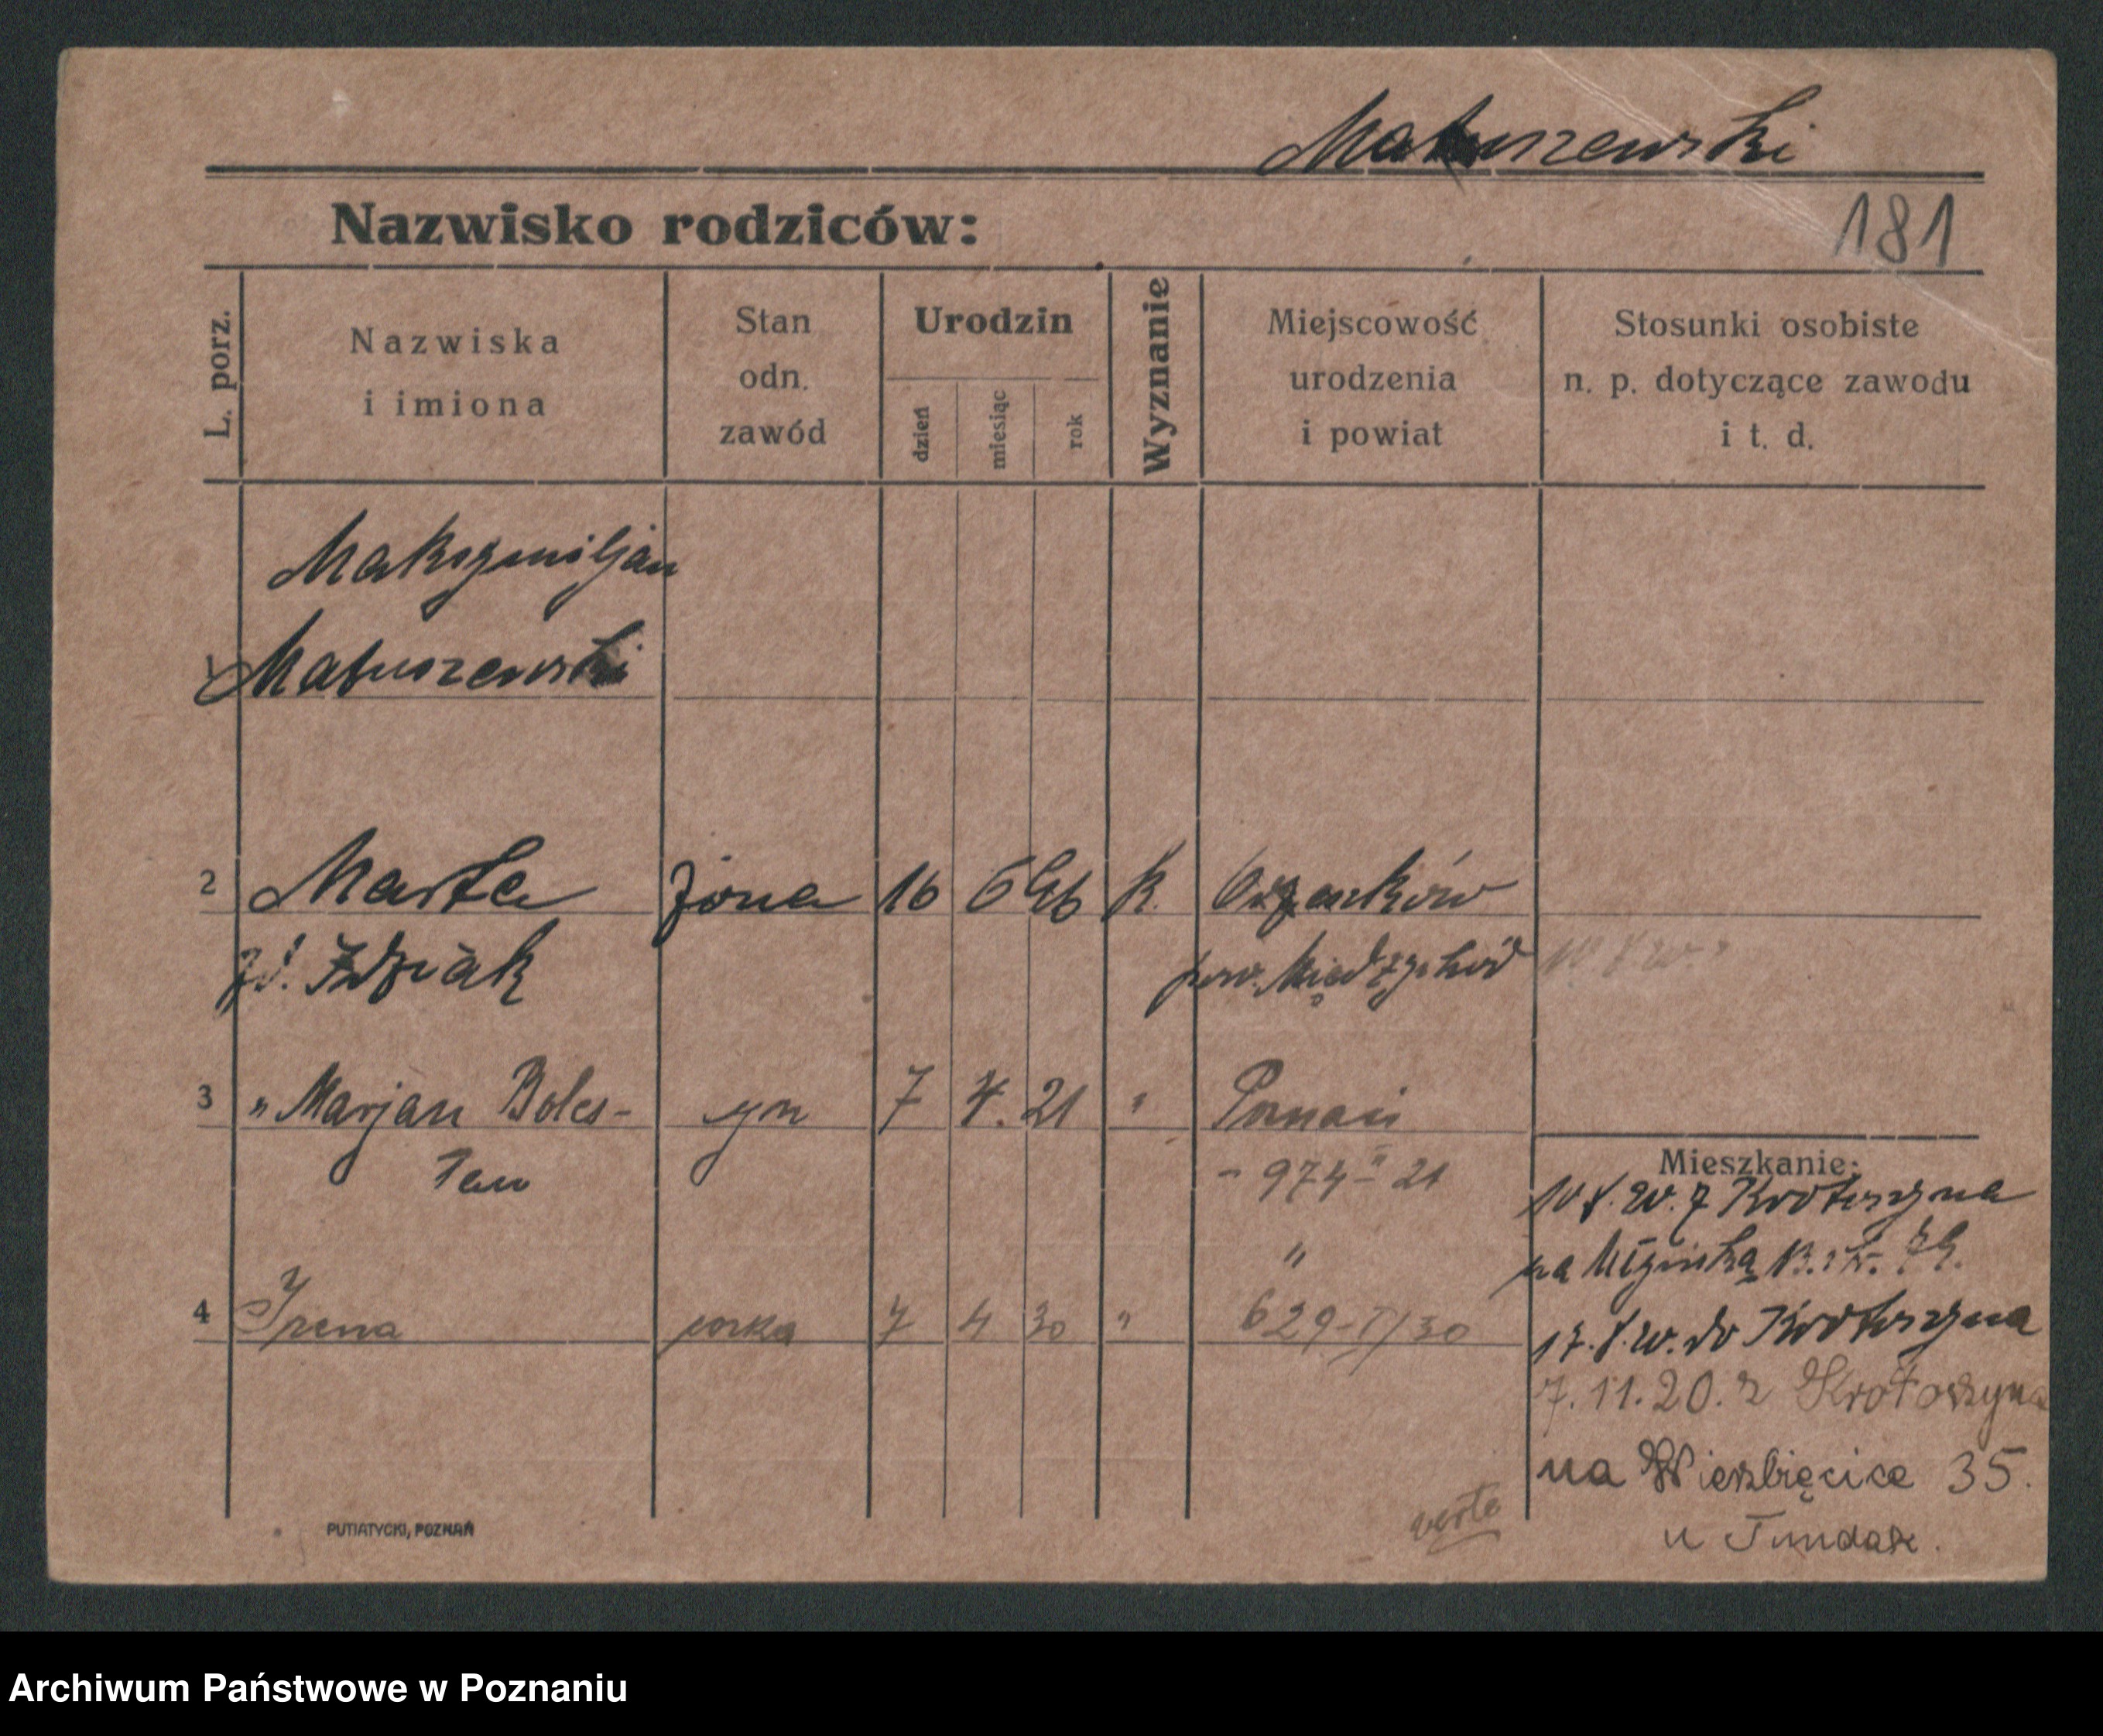 Matuszewski
Nazwisko rodziców:
181
L. porz.
Nazwiska
i imiona
Stan
odn.
zawód
Urodzin
dzień
miesiąc
rok
Wyznanie
Miejscowość
urodzenia
i powiat
Stosunki osobiste
n. p. dotyczące zawodu
i t. d.
Maksymiljan
1 Matuszewski
2 Marta żona 16 6 96 k.
pow. Międzychód
3 " Marjan Boles- syn 7 4. 21 " Poznań
ław - 974 II 21
"
4 Irena córka 7 4 30 " 629-I/30
Mieszkanie:
z Krotoszyna
na
17. do Krotoszyna
7.11.20. z Krotoszyna
na Wierzbięcice 35.
u
verte
PUTIATYCKI, POZNAŃ
Archiwum Państwowe w Poznaniu